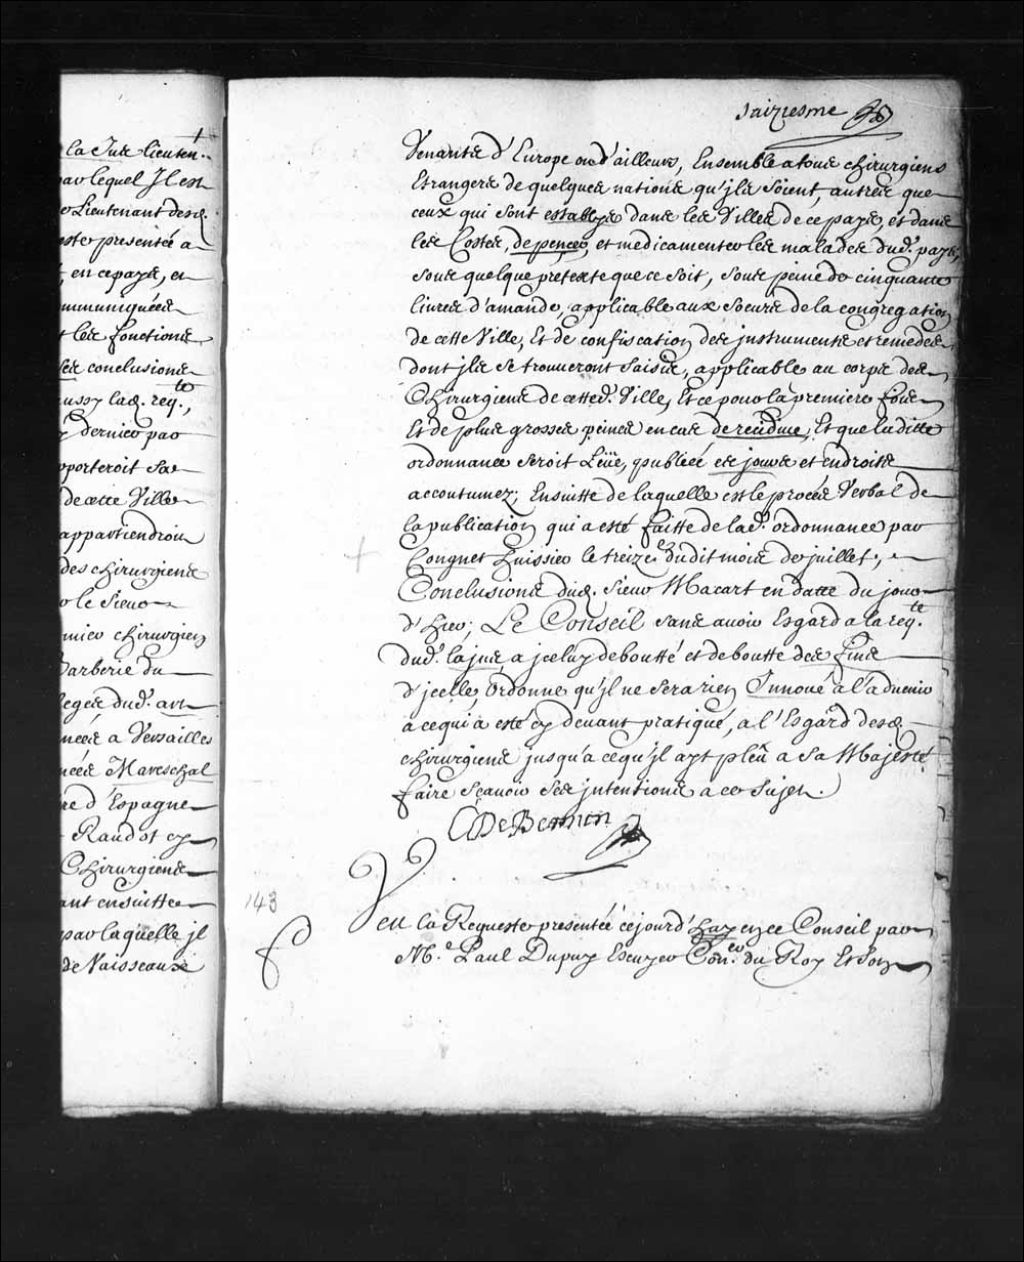 la Jus lieuten.
par lequel Il est
Lieutenant des d.
presentée a
en ce pays, en
mmuniquées
les fonctions
conclusions
ussy lad. req.te,
dernier par
pporteroit sa
de cette Ville
appartiendroit
des chirurgiens
le Sieur
mier chirurgien
Barberie du
leges, dud. art
nées a Versailles
nées Mareschal
re d'Espagne
Raudot cy
Chirurgiens
ant en suitte
par laquelle jl
de Vaisseaux
saiziesme
Venants d'Europe ou d'ailleurs, Ensemble a tous chirurgiens
Estrangers de quelques nations qu'jls soient, autres que
ceux qui sont establys dans les Villes de ce pays, et dans
les Costes, de pencer, et medicamenter les malades dud. pays,
sous quelque pretexte que ce soit, sous peine de cinquante
livres d'amande, applicable aux soeurs de la congregation
de cette Ville, Et de confiscation des jnstruments et remedes
dont jls se trouveront saisis, applicable au corps des
Chirurgiens de cetted. Ville, Et ce pour la premiere fois
Et de plus grosses peines en cas de recidive, Et que laditte
ordonnance seroit Leüe, publiée es jours et endroits
accoutumez; Ensuitte de laquelle est le procés Verbal de
la publication qui a esté faitte de lad. ordonnance par
Congnet huissier le treize.e dudit mois de juillet;
Conclusions dud. sieur Macart en datte du jour
d'hier; Le Conseil sans avoir Esgard a la req.te
dud. lajus, a jceluy deboutté et deboutte des fins
d'jcelle, Ordonne qu'jl ne sera rien Jnnoué a l'aduenir
à ce qui a esté cy devant pratiqué, a l'Esgard desd.
chirurgiens jusqu'a ce qu'jl ayt pleû a Sa Majesté
faire sçavoir ses jntentions a ce sujet.
C De Bermen
143
Veu la Requeste presentée cejourd'huy en ce Conseil par
M.e Paul Dupuy Escuyer Con.er du Roy Et son